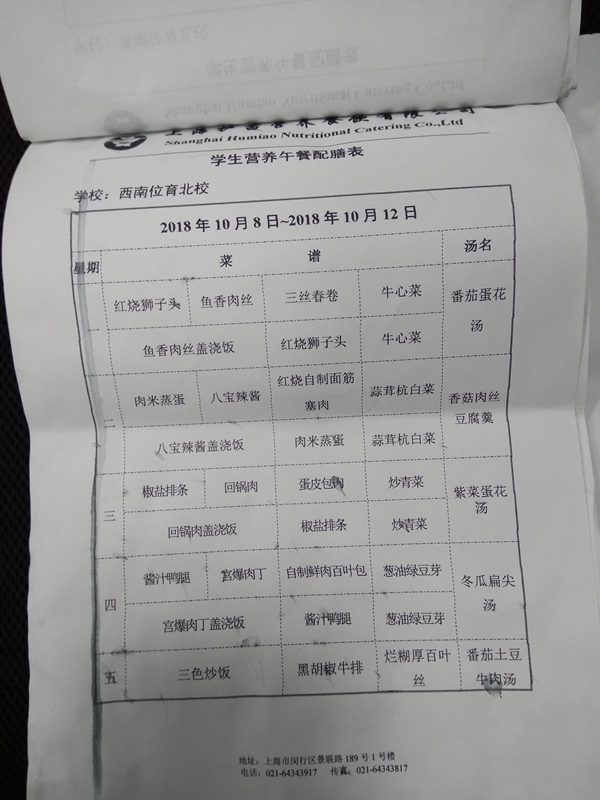 上海沪苗营养餐饮有限公司
Shanghai Humiao Nutritional Catering Co.,Ltd
学生营养午餐配膳表
学校：西南位育北校
2018 年 10 月 8 日~2018 年 10 月 12 日
星期 菜 谱 汤名
一 红烧狮子头 鱼香肉丝 三丝春卷 牛心菜 番茄蛋花汤
鱼香肉丝盖浇饭 红烧狮子头 牛心菜
二 肉米蒸蛋 八宝辣酱 红烧自制面筋塞肉 蒜茸杭白菜 香菇肉丝豆腐羹
八宝辣酱盖浇饭 肉米蒸蛋 蒜茸杭白菜
三 椒盐排条 回锅肉 蛋皮包肉 炒青菜 紫菜蛋花汤
回锅肉盖浇饭 椒盐排条 炒青菜
四 酱汁鸭腿 宫爆肉丁 自制鲜肉百叶包 葱油绿豆芽 冬瓜扁尖汤
宫爆肉丁盖浇饭 酱汁鸭腿 葱油绿豆芽
五 三色炒饭 黑胡椒牛排 烂糊厚百叶丝 番茄土豆牛肉汤
地址：上海市闵行区景联路 189 号 1 号楼
电话：021-64343917 传真：021-64343817